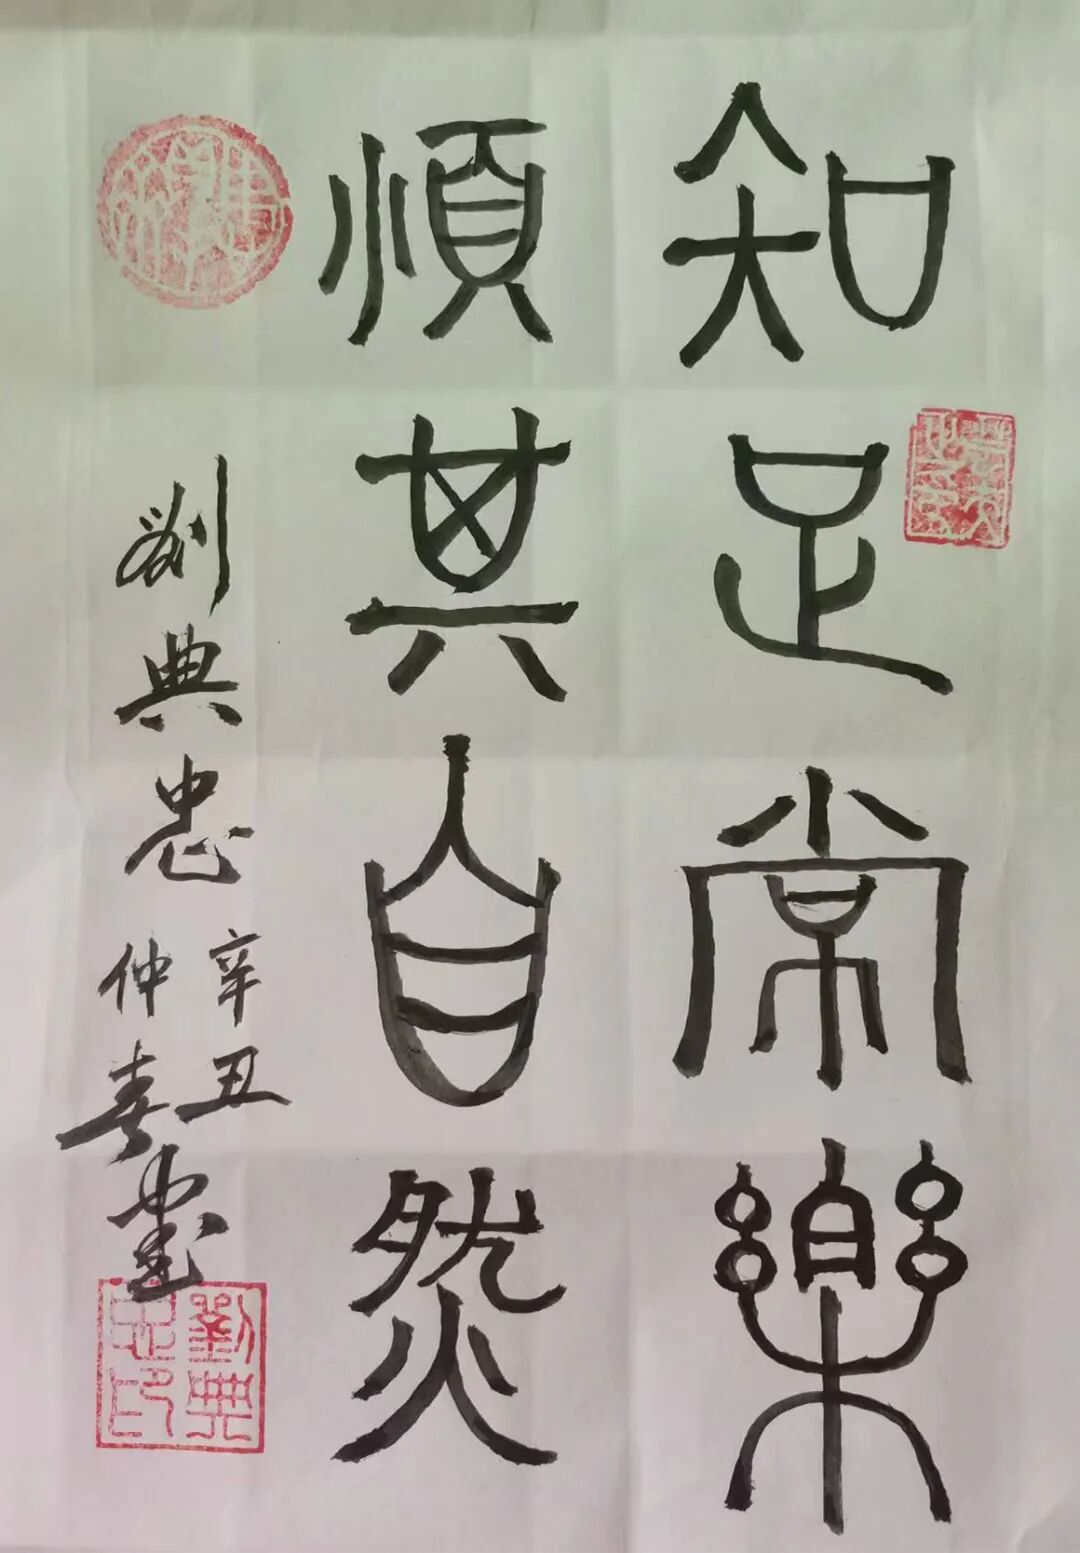 知足常樂
順其自然
劉典忠
辛丑
仲春
書
劉典忠印